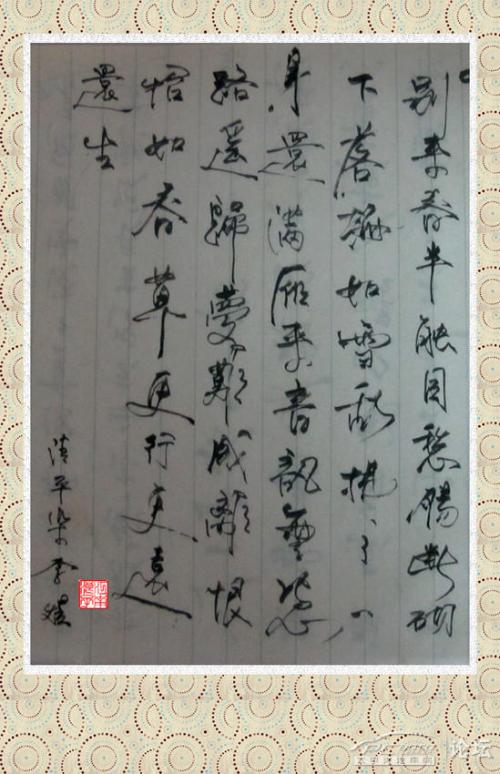 别来春半触目愁腸断砌
下落梅如雪乱拂了一
身還滿雁来音訊無憑
路遥歸夢難成離恨
恰如春草更行更遠
還生
清平樂李煜
论坛